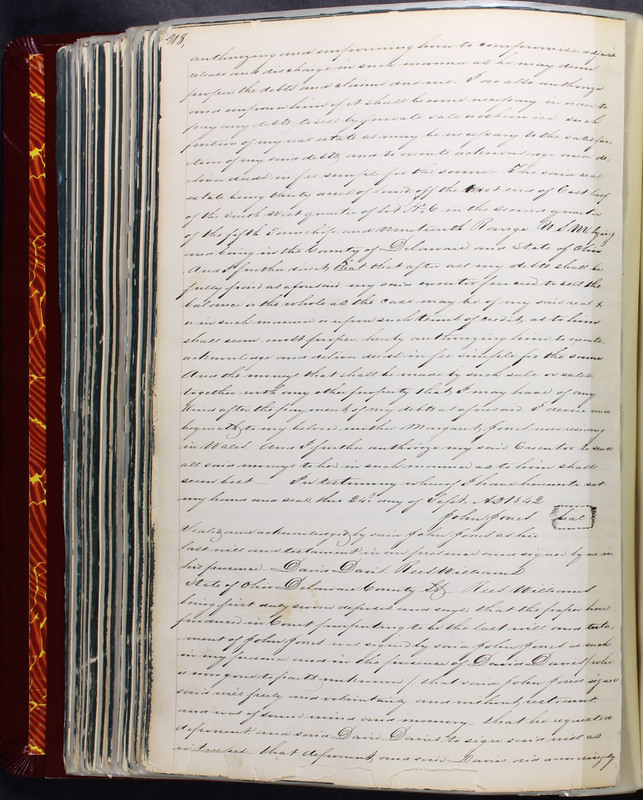 218,
authorizing and empowering him to compromise adjust
release and discharge in such manner as he may deem
proper the debts and claims due me. I do also authorize
and empower him if it shall become necessary in order to
pay any debts, to sell by private sale or otherwise such
portion of my real estate as may be necessary to the satisfac
tion of my said debts, and to execute acknowledge and de
liver deeds in fee simple for the same. The said real
estate being thirty acres of land off the West end of East half
of the South West quarter of lot No 6 in the second quarter
of the fifth Township and Nineteenth Range U.S.M. lying
and being in the County of Delaware and State of Ohio
And I further direct, that after all my debts shall be
fully paid as aforesaid my said executor proceed to sell the
balance or the whole as the case may be of my said real
in such manner upon such terms of credit, as to him
shall seem most proper hereby authorizing him to execute
acknowledge and deliver deeds in fee simple for the same
And the money that shall be made by such sale or sales
together with any other property that, I may have of any
after the payment of my debts as aforesaid I devise and
bequeath to my Margaret Jones now residing
in Wales And I further authorize my said Executor to send
all said money to her in such manner as to him shall
seem best — In testimony whereof I have hereunto set
my hand and seal this 24th day of Sept. AD 1842
John Jones seal
Sealed and acknowledged by said John Jones as his
last will and testament in our presence and signed by us in
his presence Davis Davis. Rees Williams
State of Ohio Delaware County Rees Williams
being first duly sworn deposes and says that the paper here
produced in Court purporting to be the last will and testa
ment of John Jones was signed by said John Jones as such
in my presence and in the presence of David Davis (who
is now gone to parts unknown) that said John Jones signed
said will freely and voluntarily and without restraint
and was of sound mind and memory — that he requested
deponent and said David Davis to sign said will as
witnesses that deponent, and said Davis did accordingly